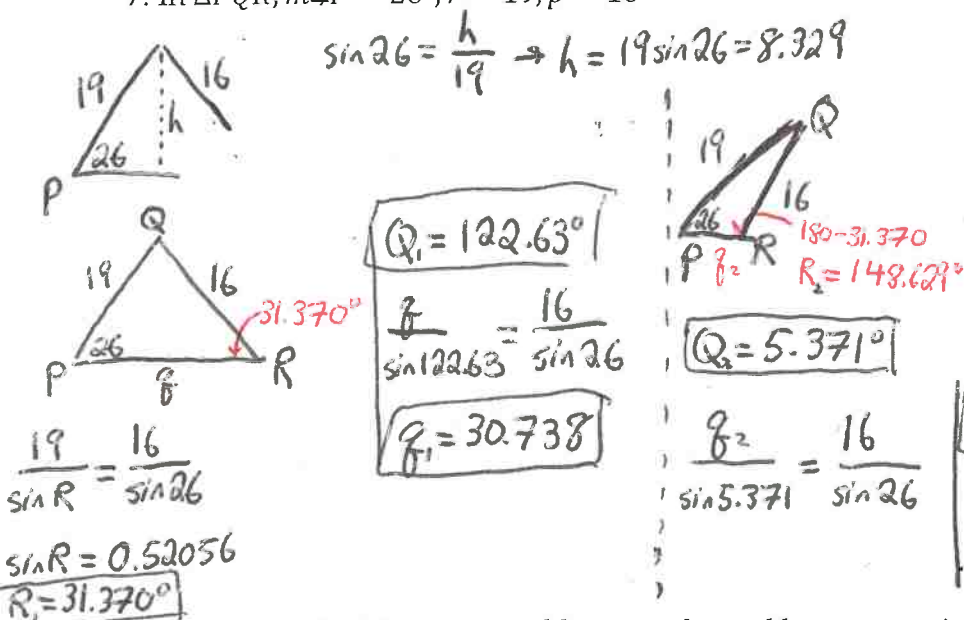 sin 26 = h/19 → h = 19 sin 26 = 8.329
19 16
h
26
P
Q
19 16
31.370°
26
P q R
19/sin R = 16/sin 26
sin R = 0.52056
R₁ = 31.370°
Q₁ = 122.63°
q/sin 122.63 = 16/sin 26
q₁ = 30.738
Q
19
16
26
180-31.370
P q₂ R
R₂ = 148.629°
Q₂ = 5.371°
q₂/sin 5.371 = 16/sin 26